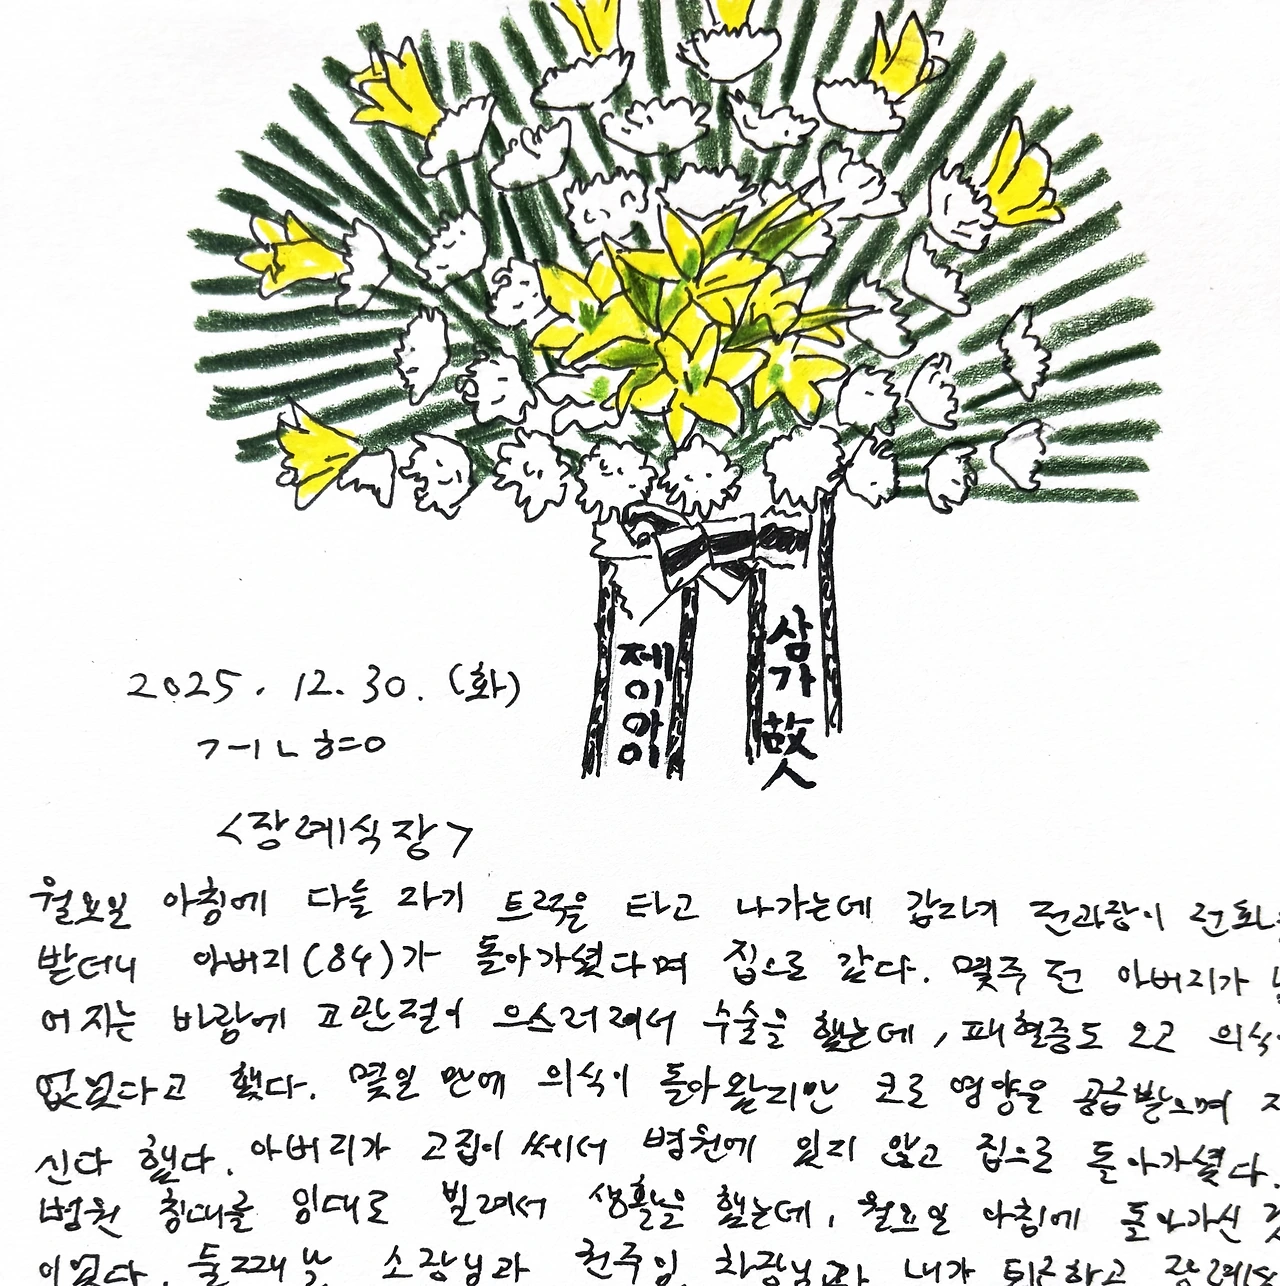 제이아이
삼가 故人
2025. 12. 30. (화)
ㄱㅓㄴ ㅎㅡㅇ
<장례식장>
월요일 아침에 다들 자기 트럭을 타고 나가는데 갑자기 전과장이 전화를
받더니 아버지(84)가 돌아가셨다며 집으로 갔다. 몇주 전 아버지가
어지는 바람에 고관절이 으스러져서 수술을 했는데, 패혈증도 오고 의식이
없었다고 했다. 몇일 만에 의식이 돌아왔지만 코로 영양을 공급받으며
신다 했다. 아버지가 고집이 쎄서 병원에 있지 않고 집으로 돌아가셨다.
병원 침대를 임대로 빌려서 생활을 했는데, 월요일 아침에 돌아가신
이었다. 둘째날 소장님과 권주임, 차장님과 내가 퇴근하고